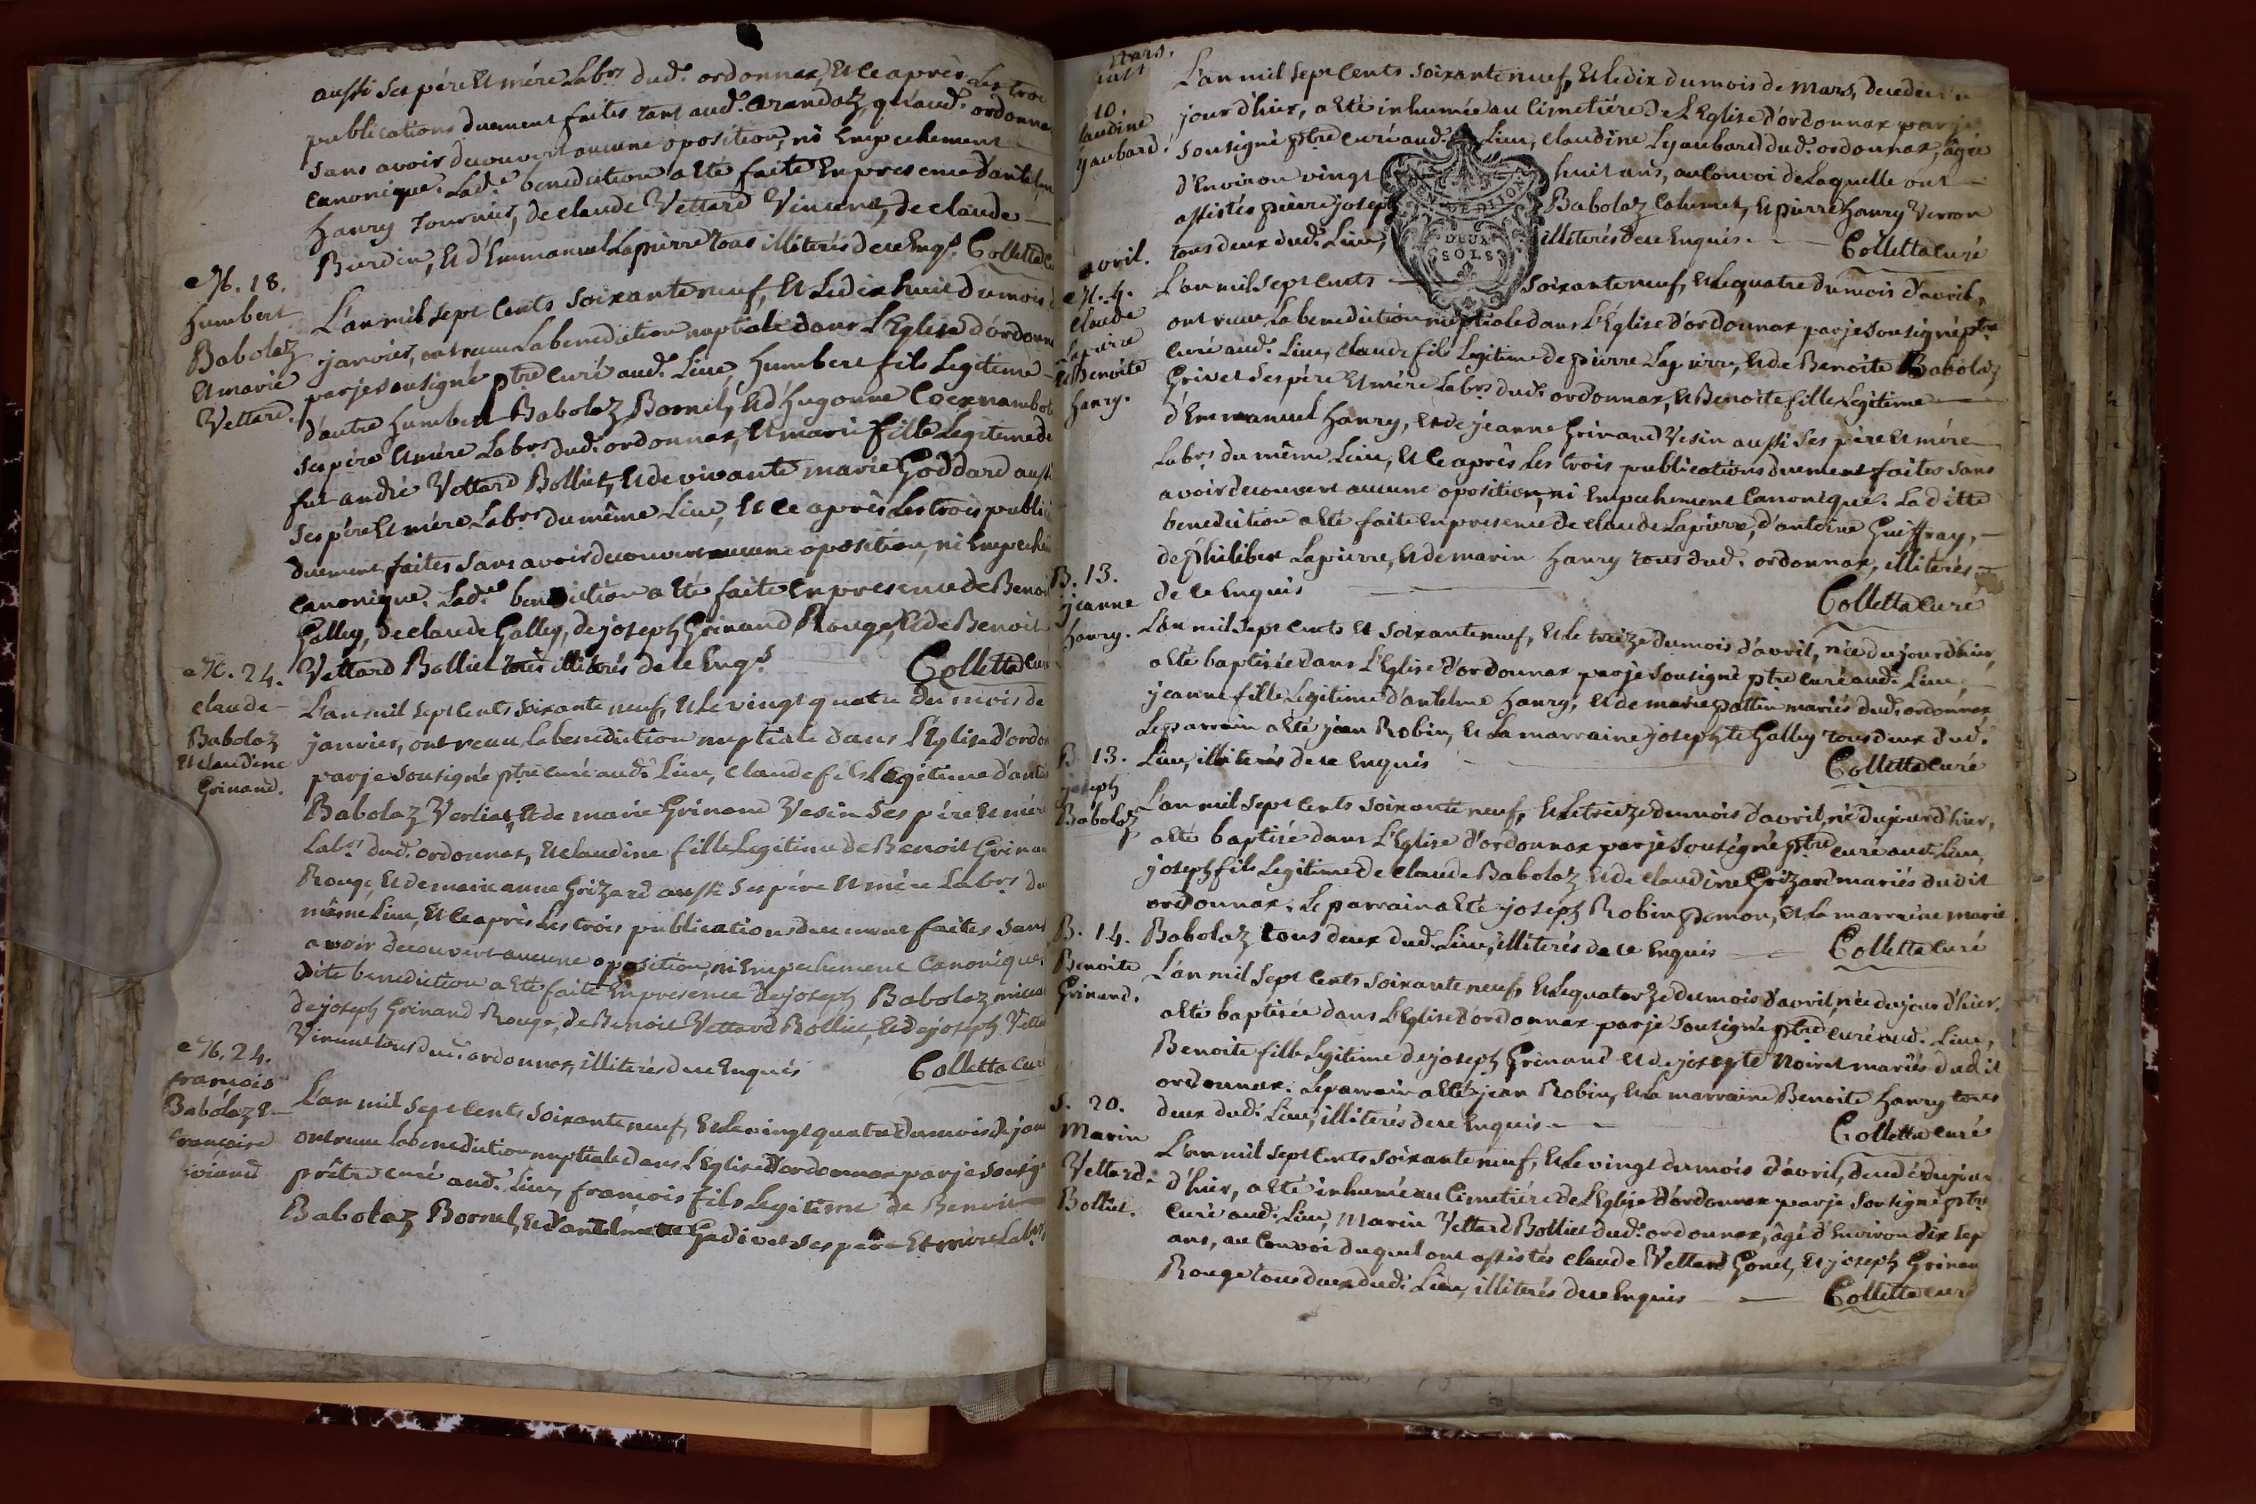 aussi ses pére et mére Labrs dud. ordonnax, et ce après Les troi
publications duement faites tant aud. arandaz, qu'aud. ordonna
sans avoir decouvert aucune oposition, ni Empechement
canonique. Lad.e benediction a été faite En presence d'antelm
hanry Tournier, de claude Vettard Vincent, de claude
Burdin, et d'Emmanuel Lapierre tous illiterés de ce Enqs. Colletta c
M. 18.
humbert
Babolaz
et marie
Vettard.
L'an mil sept Cents soixante neuf, et Le dix huit du mois d
janvier, ont recu La benediction nuptiale dans L'Eglise d'ordonna
par je sousigné ptre Curé aud. Lieu humbert fils Legitime
d'autre humbert Babolaz Bornel, et d'hugonne Cocxnambot
ses pére et mére Labrs dud. ordonnax, et marie fille Legitime de
fut andré Vettard Bolliet, et de vivante marie Goddard aussi
ses pére et mére Labrs du même Lieu, et ce après Les trois publi
duement faites sans avoir decouvert aucune oposition, ni Empeche
canonique. Lad.e benediction a été faite En presence de Benoi
Galley, de claude Galley, de joseph Grinand Rouge, et de Benoit
Vettard Bolliet tous illiterés de ce Enqs. Colletta curé
M. 24.
claude
Babolaz
et claudine
Grinand.
L'an mil sept cents soixante neuf, et Le vingt quatre du mois de
janvier, ont recu La benediction nuptiale dans L'Eglise d'ordon
par je sousigné ptre curé aud. Lieu, claude fils Legitime d'ant
Babolaz Verliat, et de marie Grinand Vesin ses pére et mére
Labrs dud. ordonnax, et claudine fille Legitime de Benoit Grinan
Rouge, et de marie anne Grizard aussi ses pére et mére Labrs du
même Lieu, et ce après Les trois publications duement faites sans
avoir decouvert aucune oposition, ni Empechement canonique.
dite benediction a été faite En presence de joseph Babolaz
de joseph Grinand Rouge, de Benoit Vettard Bolliet, et de joseph Vetta
Vincent tous dud. ordonnax, illiterés de ce Enquis Colletta curé
M. 24.
francois
Babolaz et
francoise
L'an mil sept cents soixante neuf, et Le vingt quatre du mois de jan
ont recu La benediction nuptiale dans L'Eglise d'ordonnax par je sousig
prêtre curé aud. Lieu, francois fils Legitime de Benoit
Babolaz Bornel, et d'antelmette Gadivet ses pére et mére Labrs
mars.
10.
laudine
yaubard.
L'an mil sept Cents soixante neuf, et le dix du mois de mars, decedée
jour d'hier, a été inhumée au Cimetiére de L'Eglise d'ordonnax par je
sousigné ptre curé aud. Lieu, claudine Lyaubard dud. ordonnax, âgée
d'Environ vingt huit ans, au Convoi de Laquelle ont
assistés pierre joseph Babolaz Calumet, et pierre hanry Verron
tous deux dud. Lieu, illiterés de ce Enquis. Colletta curé
DEUX
SOLS
avril.
M. 4.
claude
Lapierre
et Benoite
hanry.
L'an mil sept cents soixante neuf, et Le quatre du mois d'avril,
ont recu La benediction nuptiale dans L'Eglise d'ordonnax par je sousigné ptre
curé aud. Lieu, claude fils Legitime de pierre Lapierre, et de Benoite Babolaz
Grivet ses pére et mére Labrs dud. ordonnax, et Benoite fille Legitime
d'Emmanuel hanry, et de jeanne Grinand Vesin aussi ses pére et mére
Labrs du même Lieu, et ce après Les trois publications duement faites sans
avoir decouvert aucune oposition, ni Empechement Canonique. La ditte
benediction a été faite En presence de claude Lapierre, d'antoine Guiffray,
de philibert Lapierre, et de marin hanry tous dud. ordonnax, illiterés
de ce Enquis Colletta curé
B. 13.
jeanne
hanry.
L'an mil sept cents et soixante neuf, et Le treize du mois d'avril, née du jour d'hier,
a été baptisée dans L'Eglise d'ordonnax par je sousigné ptre curé aud. Lieu,
jeanne fille Legitime d'antelme hanry, et de marie pattin mariés dud. ordonnax
Le parrain a été jean Robin, et La marraine josephte Galley tous deux dud.
Lieu, illiterés de ce Enquis Colletta curé
B. 13.
joseph
Babolaz
L'an mil sept cents soixante neuf, et Le treize du mois d'avril, né du jour d'hier,
a été baptisé dans L'Eglise d'ordonnax par je sousigné ptre curé aud. Lieu,
joseph fils Legitime de claude Babolaz et de claudine Grizard mariés dudit
ordonnax. Le parrain a été joseph Robin Demon, et La marraine marie
Babolaz tous deux dud. Lieu, illiterés de ce Enquis Colletta curé
B. 14.
Benoite
Grinand.
L'an mil sept cents soixante neuf, et Le quatorze du mois d'avril, née du jour d'hier,
a été baptisée dans L'Eglise d'ordonnax par je sousigné ptre curé aud. Lieu,
Benoite fille Legitime de joseph Grinand et de josepte Noiret mariés dudit
ordonnax. Le parrain a été jean Robin, et La marraine Benoite hanry tous
deux dud. Lieu, illiterés de ce Enquis Colletta curé
S. 20.
Marin
Vettard
Bolliet.
L'an mil sept cents soixante neuf, et Le vingt du mois d'avril, decedé du jour
d'hier, a été inhumé au Cimetiére de L'Eglise d'ordonnax par je sousigné ptre
curé aud. Lieu, Marin Vettard Bolliet dud. ordonnax, âgé d'Environ dix sep
ans, au Convoi duquel ont assistés claude Vettard Gonet, et joseph Grinan
Rouge tous deux dud. Lieu, illiterés de ce Enquis Colletta curé